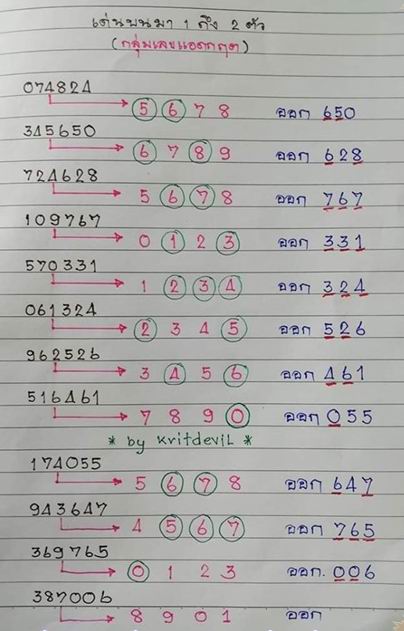 เด่นบนมา 1 ถึง 2 ตัว
(กลุ่มเลขแอดกฤต)
074824
5 6 7 8 ออก 650
345650
6 7 8 9 ออก 628
724628
5 6 7 8 ออก 767
109767
0 1 2 3 ออก 331
570331
1 2 3 4 ออก 324
061324
2 3 4 5 ออก 526
962526
3 4 5 6 ออก 461
516461
7 8 9 0 ออก 055
* by KritdeviL *
174055
5 6 7 8 ออก 647
943647
4 5 6 7 ออก 765
369765
0 1 2 3 ออก. 006
387006
8 9 0 1 ออก